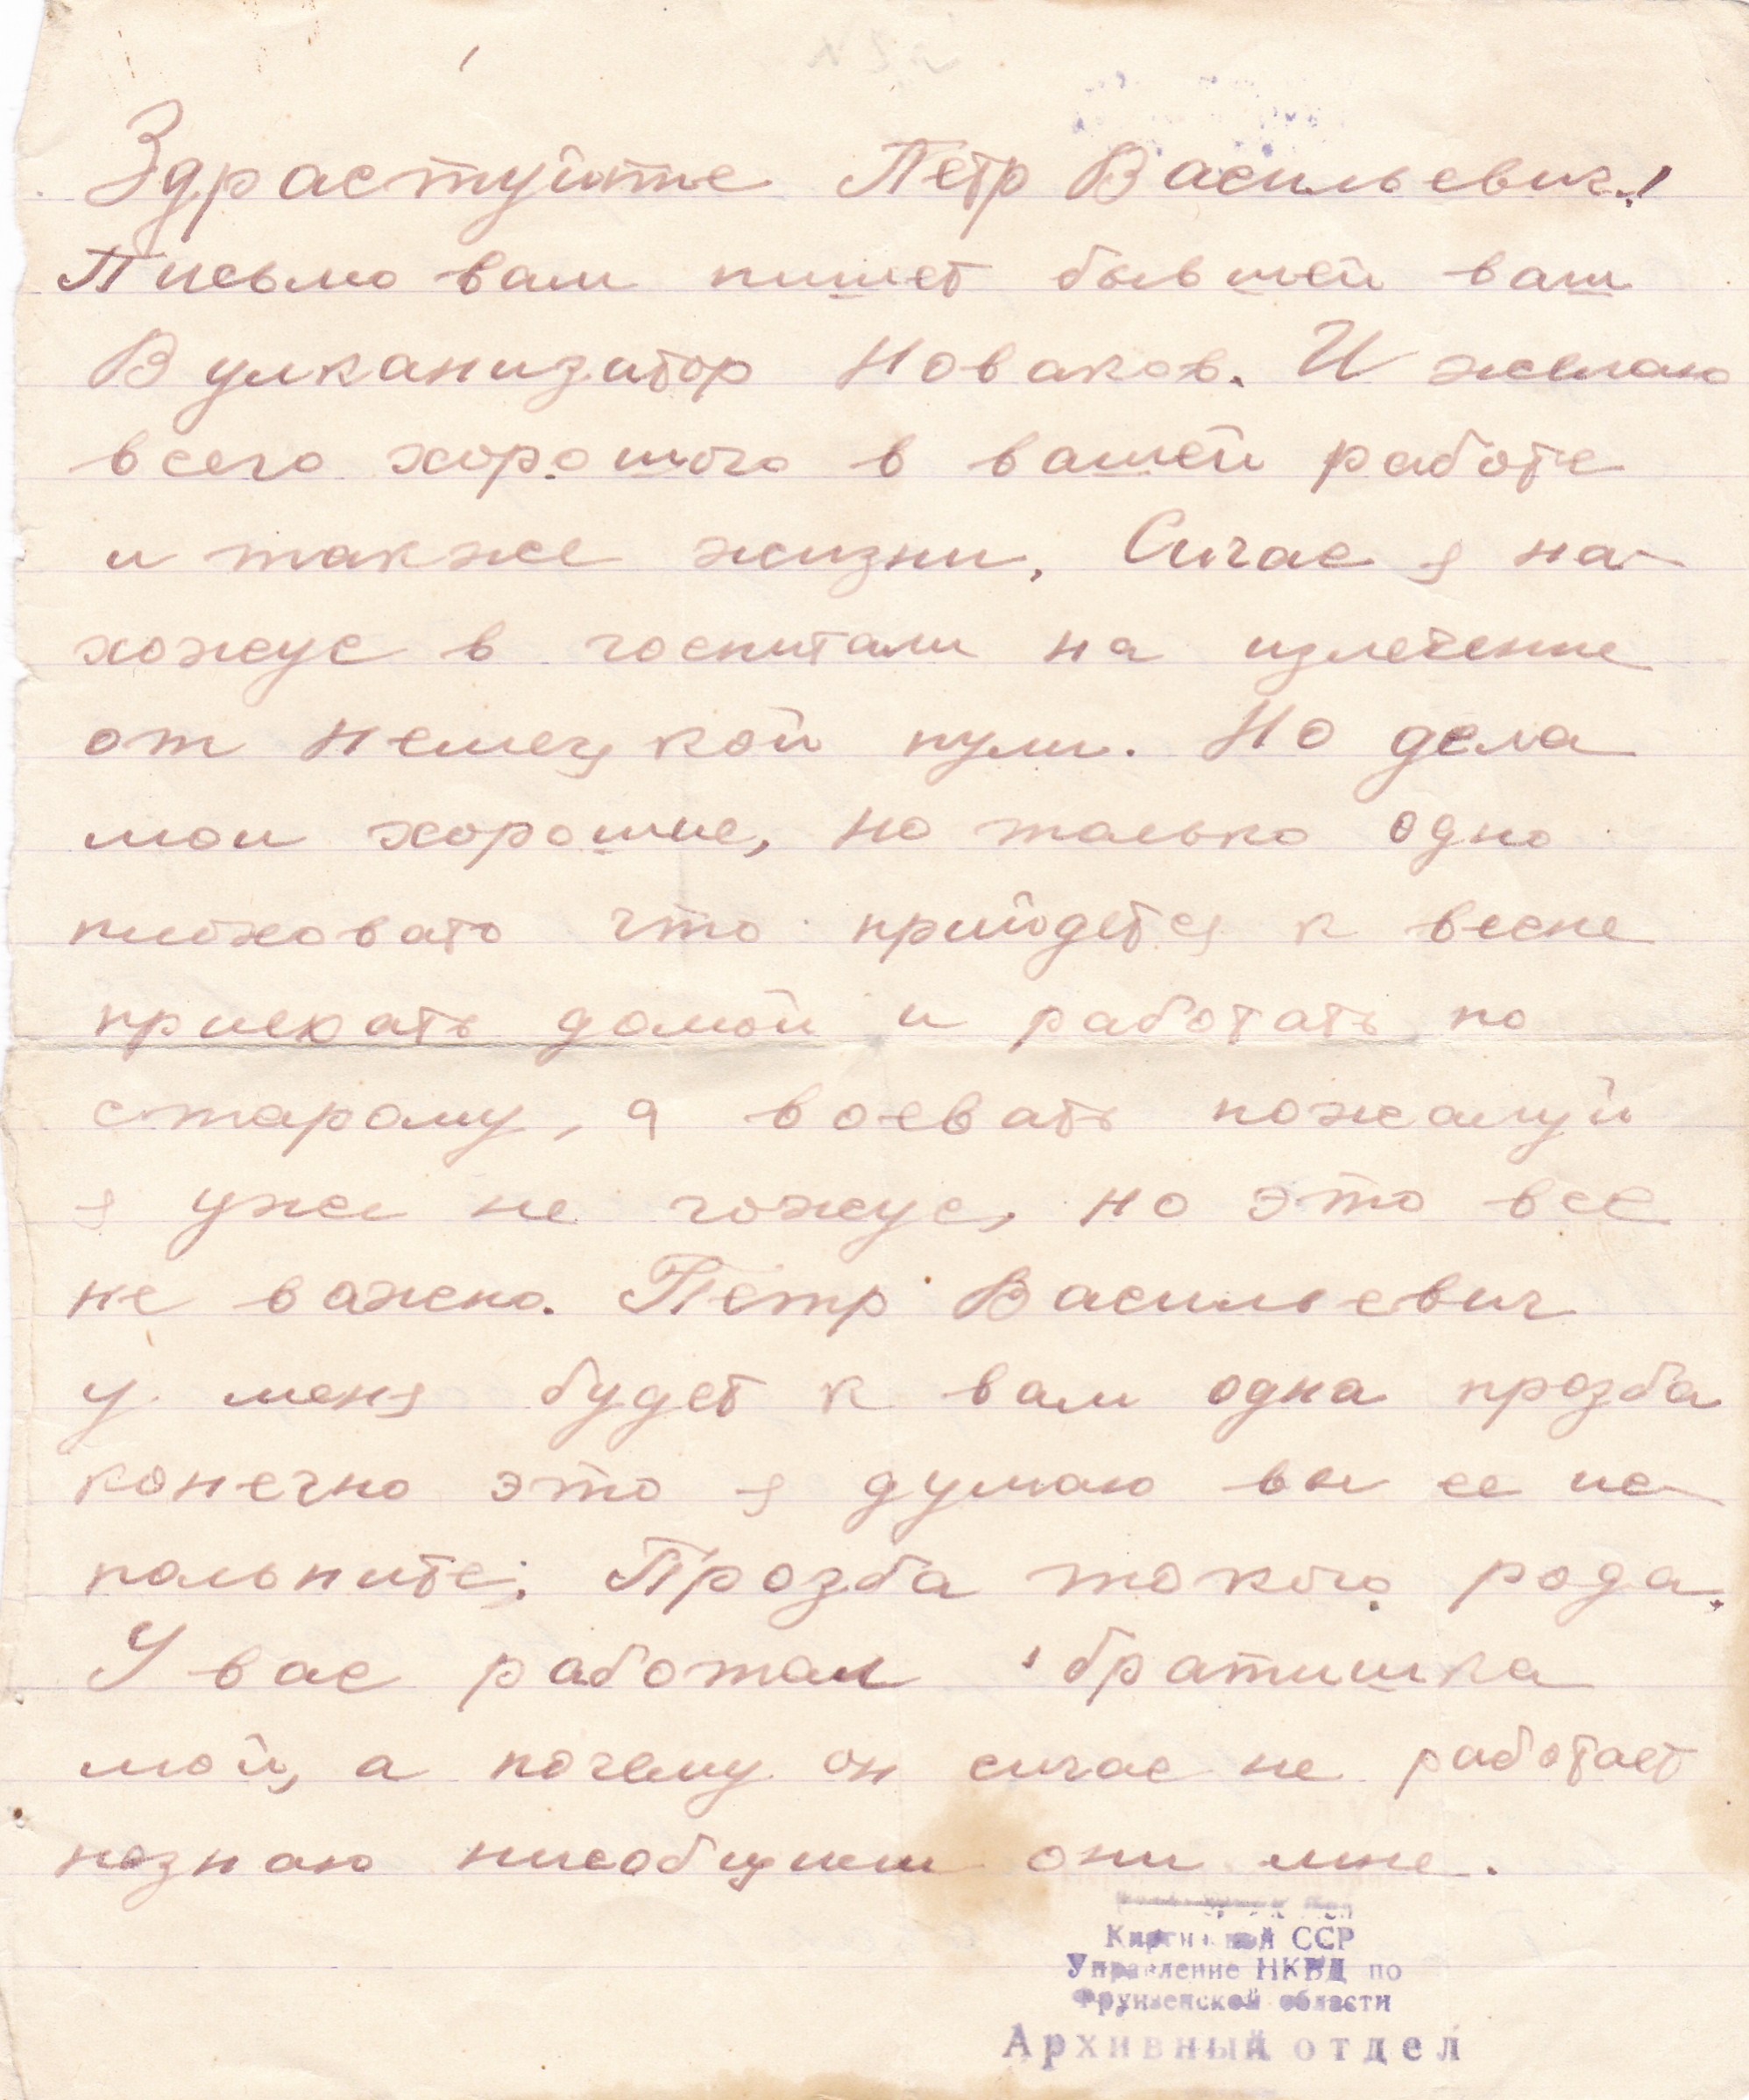 Здрастуйте Петр Васильевич!
Письмо вам пишет бывшей ваш
Вулканизатор Новаков. И желаю
всего хорошого в вашей работе
и также жизни, Сичас я на-
хожус в госпитали на излечение
от немецкой пули. Но дела
мои хорошие, но только одно
плоховато что прийдется к весне
приехать домой и работать по
старому, а воевать пожалуй
я уже не гожус, но это все
не важно. Петр Васильевич
у меня будет к вам одна прозба
конечно это я думаю вы ее ис-
польните; Прозба такого рода.
У вас работал братишка
мой, а почему он сичас не работает
незнаю нисобщили они мне.
ССР
Управление НКВД по
Фрунзенской области
Архивный отдел